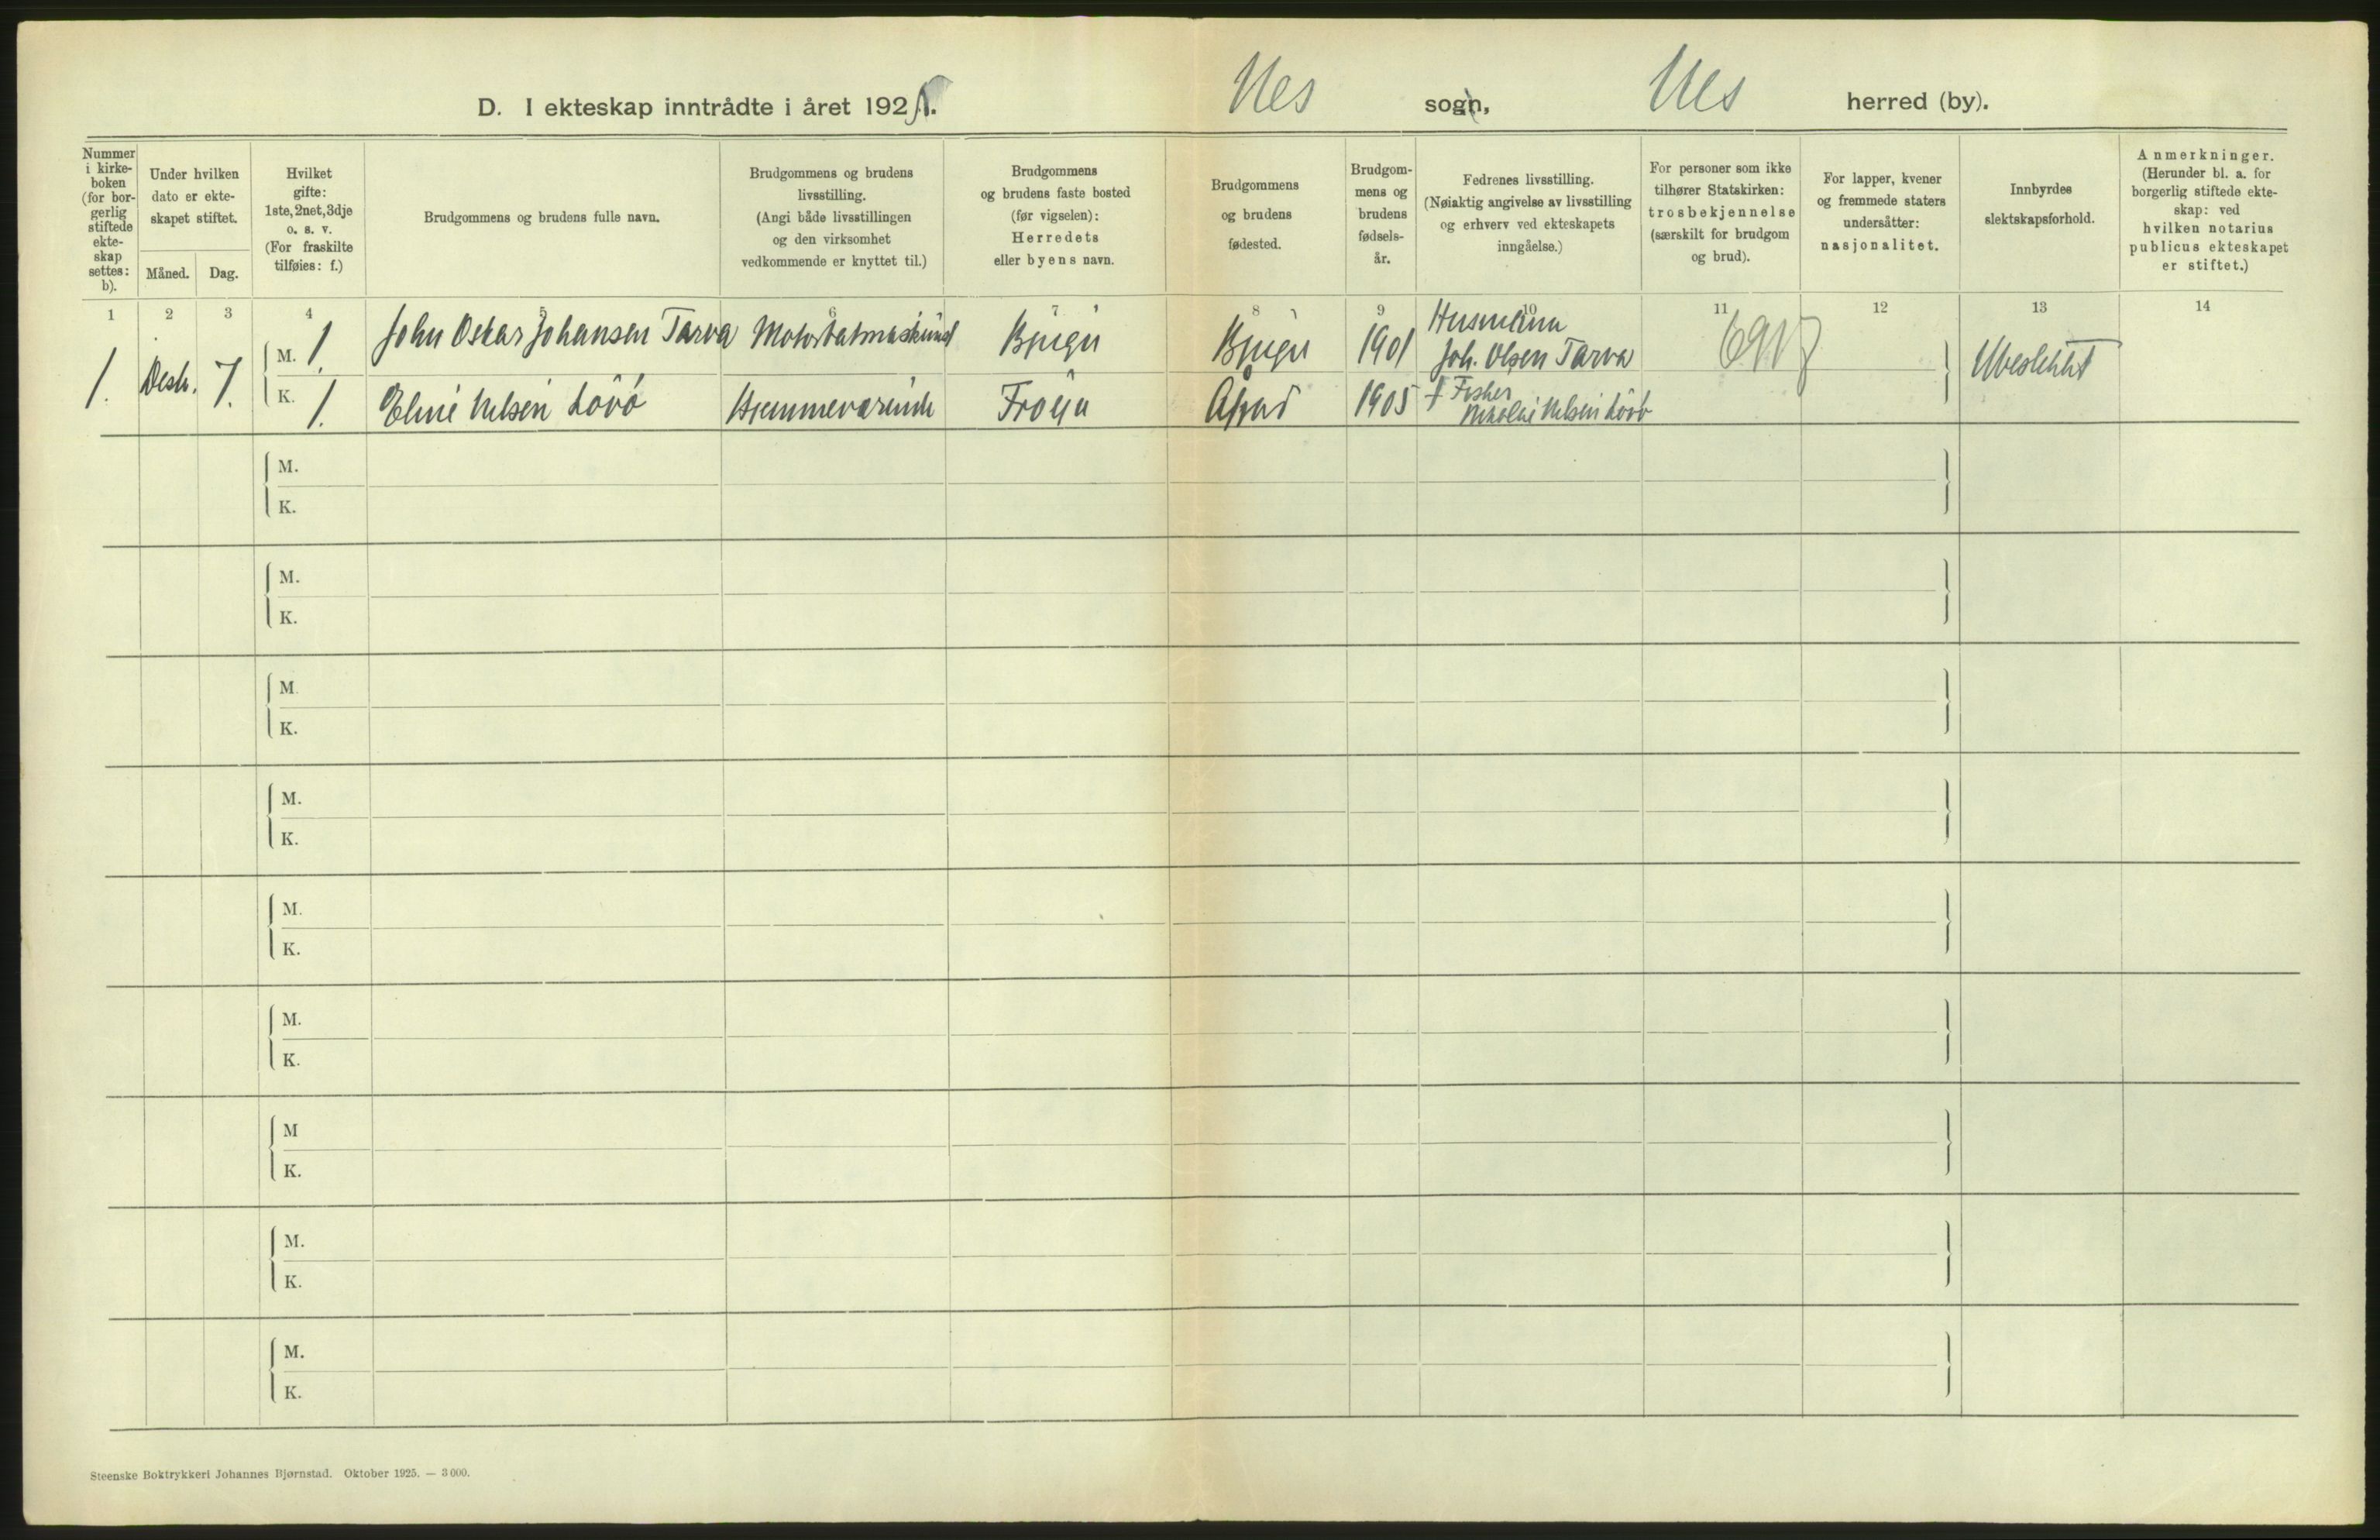 D. I ekteskap inntrådte i året 192
Nes sogn, Nes herred (by).
Nummer i kirke-boken (for bor-gerlig stiftede ekte-skap settes: b).
Under hvilken dato er ekte-skapet stiftet.
Måned. Dag.
Hvilket gifte: 1ste, 2net, 3dje o. s. v. (For fraskilte tilføies: f.)
Brudgommens og brudens fulle navn.
Brudgommens og brudens livsstilling. (Angi både livsstillingen og den virksomhet vedkommende er knyttet til.)
Brudgommens og brudens faste bosted (før vigselen): Herredets eller byens navn.
Brudgommens og brudens fødested.
Brudgom-mens og brudens fødsels-år.
Fedrenes livsstilling. (Nøiaktig angivelse av livsstilling og erhverv ved ekteskapets inngåelse.)
For personer som ikke tilhører Statskirken: trosbekjennelse (særskilt for brudgom og brud).
For lapper, kvener og fremmede staters undersåtter: nasjonalitet.
Innbyrdes slektskapsforhold.
Anmerkninger. (Herunder bl. a. for borgerlig stiftede ekte-skap: ved hvilken notarius publicus ekteskapet er stiftet.)
1 2 3 4 5 6 7 8 9 10 11 12 13 14
1. Desb. 7. M. 1. John Oskar Johansen Tarva Motorbåtmaskinist Bjugn Bjugn 1901 Husmann Joh. Olsen Tarva Ubeslektet
K. 1. Eline Nelsen Lövö Hjemmeværende Fröya Åfjord 1905 † Fisker Nikolai Nelsen Lövö
M.
K.
M.
K.
M.
K.
M.
K.
M.
K.
M.
K.
M
K.
M.
K.
M.
K.
Steenske Boktrykkeri Johannes Bjørnstad. Oktober 1925. — 3000.